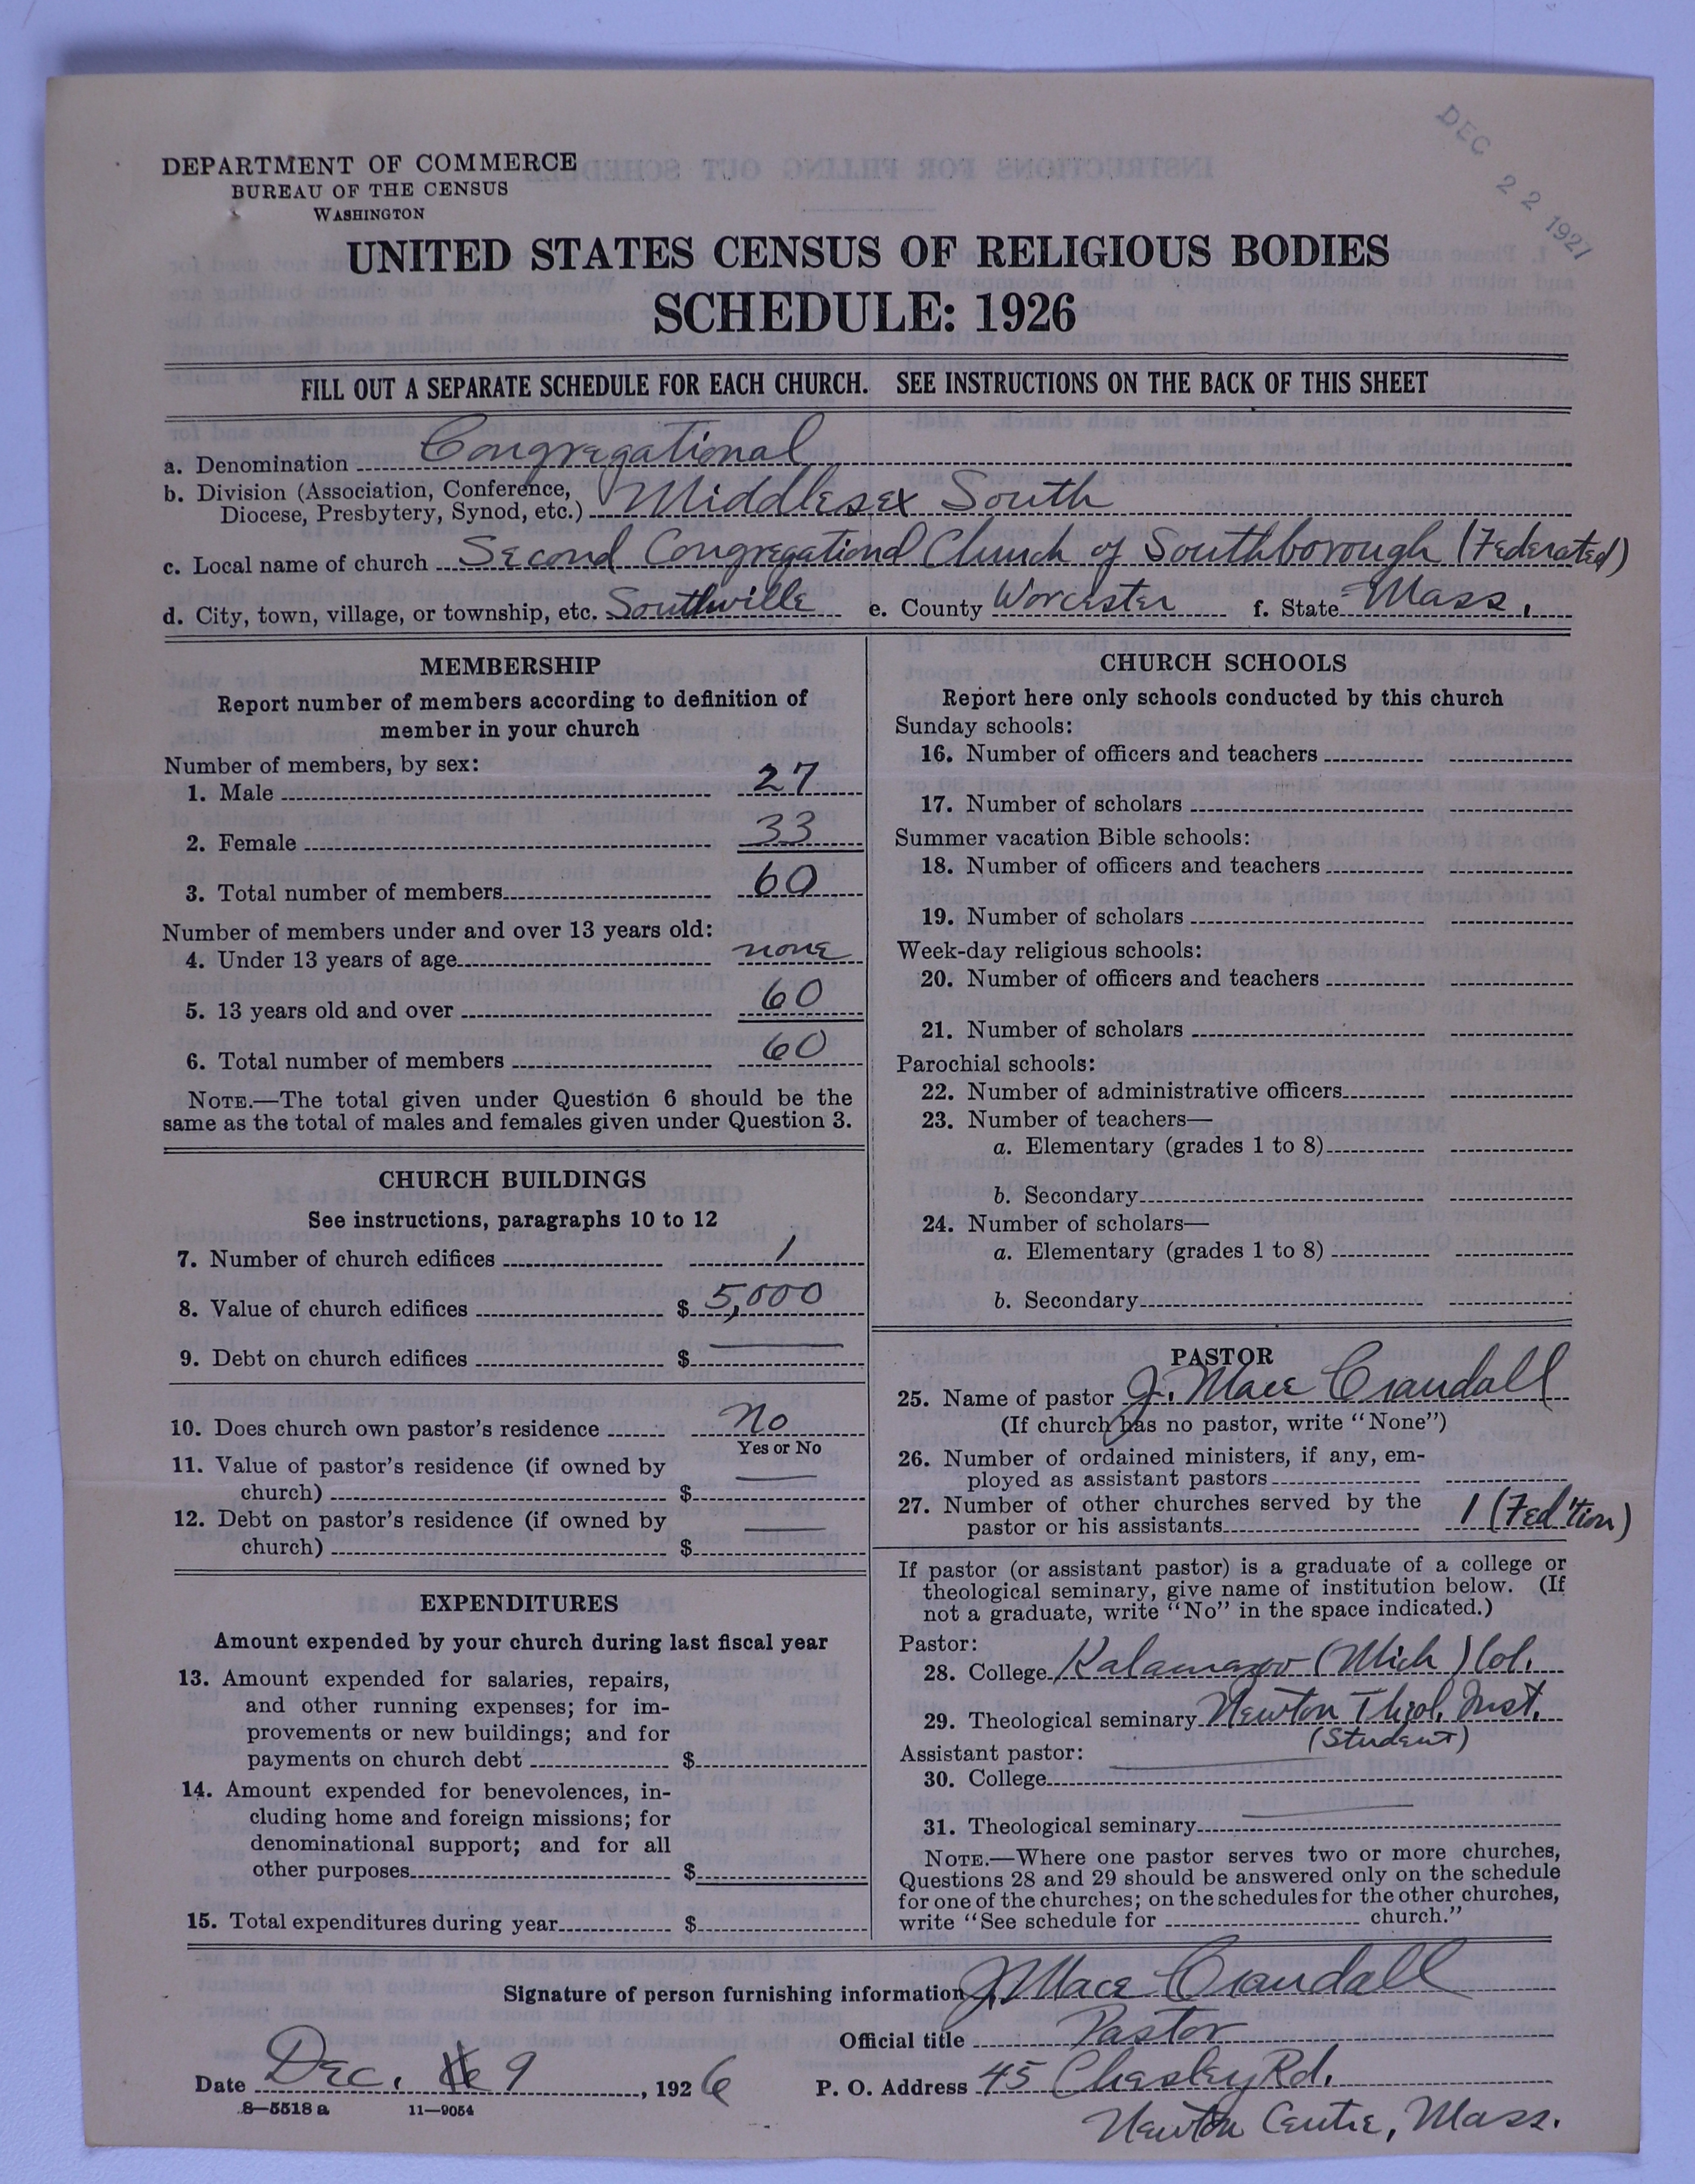 DEC 22 1927
DEPARTMENT OF COMMERCE
BUREAU OF THE CENSUS
WASHINGTON
UNITED STATES CENSUS OF RELIGIOUS BODIES
SCHEDULE: 1926
FILL OUT A SEPARATE SCHEDULE FOR EACH CHURCH. SEE INSTRUCTIONS ON THE BACK OF THIS SHEET
a. Denomination Congregational
b. Division (Association, Conference,
Diocese, Presbytery, Synod, etc.) Middlesex South
c. Local name of church Second Congregational Church of Southborough (Federated)
d. City, town, village, or township, etc. Southville e. County Worcester f. State Mass.
MEMBERSHIP
Report number of members according to definition of
member in your church
Number of members, by sex:
1. Male 27
2. Female 33
3. Total number of members 60
Number of members under and over 13 years old:
4. Under 13 years of age none
5. 13 years old and over 60
6. Total number of members 60
NOTE.—The total given under Question 6 should be the
same as the total of males and females given under Question 3.
CHURCH BUILDINGS
See instructions, paragraphs 10 to 12
7. Number of church edifices 1
8. Value of church edifices $ 5,000
9. Debt on church edifices $ —
10. Does church own pastor's residence No
Yes or No
11. Value of pastor's residence (if owned by
church) $ —
12. Debt on pastor's residence (if owned by
church) $ —
EXPENDITURES
Amount expended by your church during last fiscal year
13. Amount expended for salaries, repairs,
and other running expenses; for im-
provements or new buildings; and for
payments on church debt $
14. Amount expended for benevolences, in-
cluding home and foreign missions; for
denominational support; and for all
other purposes $
15. Total expenditures during year $
CHURCH SCHOOLS
Report here only schools conducted by this church
Sunday schools:
16. Number of officers and teachers
17. Number of scholars
Summer vacation Bible schools:
18. Number of officers and teachers
19. Number of scholars
Week-day religious schools:
20. Number of officers and teachers
21. Number of scholars
Parochial schools:
22. Number of administrative officers
23. Number of teachers—
a. Elementary (grades 1 to 8)
b. Secondary
24. Number of scholars—
a. Elementary (grades 1 to 8)
b. Secondary
PASTOR
25. Name of pastor J. Mace Crandall
(If church has no pastor, write "None")
26. Number of ordained ministers, if any, em-
ployed as assistant pastors
27. Number of other churches served by the
pastor or his assistants 1 (Fed'tion)
If pastor (or assistant pastor) is a graduate of a college or
theological seminary, give name of institution below. (If
not a graduate, write "No" in the space indicated.)
Pastor:
28. College Kalamazoo (Mich) Col.
29. Theological seminary Newton Theol. Inst.
(Student)
Assistant pastor:
30. College —
31. Theological seminary —
NOTE.—Where one pastor serves two or more churches,
Questions 28 and 29 should be answered only on the schedule
for one of the churches; on the schedules for the other churches,
write "See schedule for church."
Signature of person furnishing information J. Mace Crandall
Official title Pastor
Date Dec. 9, 1926 P. O. Address 45 Chesley Rd.
Newton Centre, Mass.
8—5518 a 11—9054